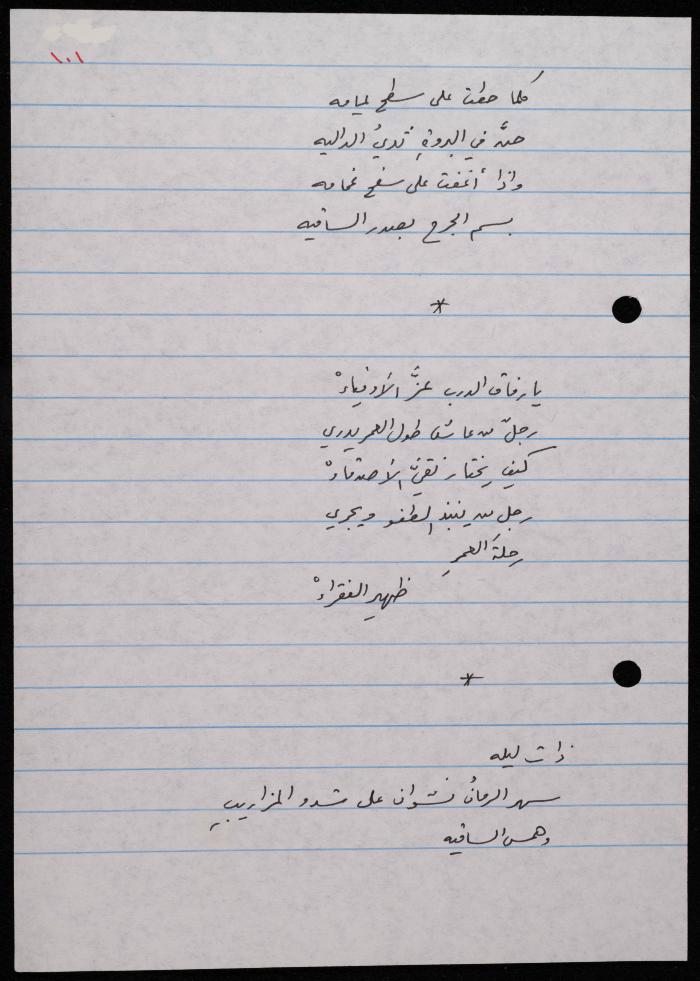 ١٠١
كلما حطت على سطح يمامه
حنّ في البروةِ ثديُ الداليه
واذا أغفت على سفح غمامه
بسم الجرح بصدر الساقيه
*
يا رفاق الدرب عزَّ الأوفياءْ
رجلٌ من عاش طول العمر يدري
كيف يختار نقيَّ الأصدقاءْ
رجل من ينبذ الطفو ويجري
رحلةَ العمرِ
ظهير الفقراءْ
*
ذات ليله
سهر الرمانُ نشوان على شدو المزاريب
وهمس الساقيه